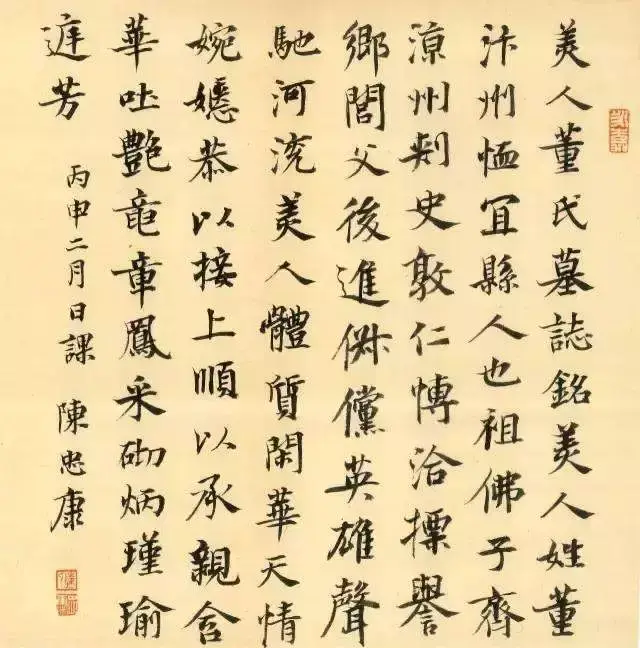 美人董氏墓誌銘美人姓董
汴州恤冝縣人也祖佛子齊
涼州刺史敦仁博洽摽譽
鄉閭父後進俶儻英雄聲
馳河流美人體質閑華天情
婉嫕恭以接上順以承親含
華吐艷竜章鳳采砌炳瑾瑜
庭芳
丙申二月日課 陳忠康